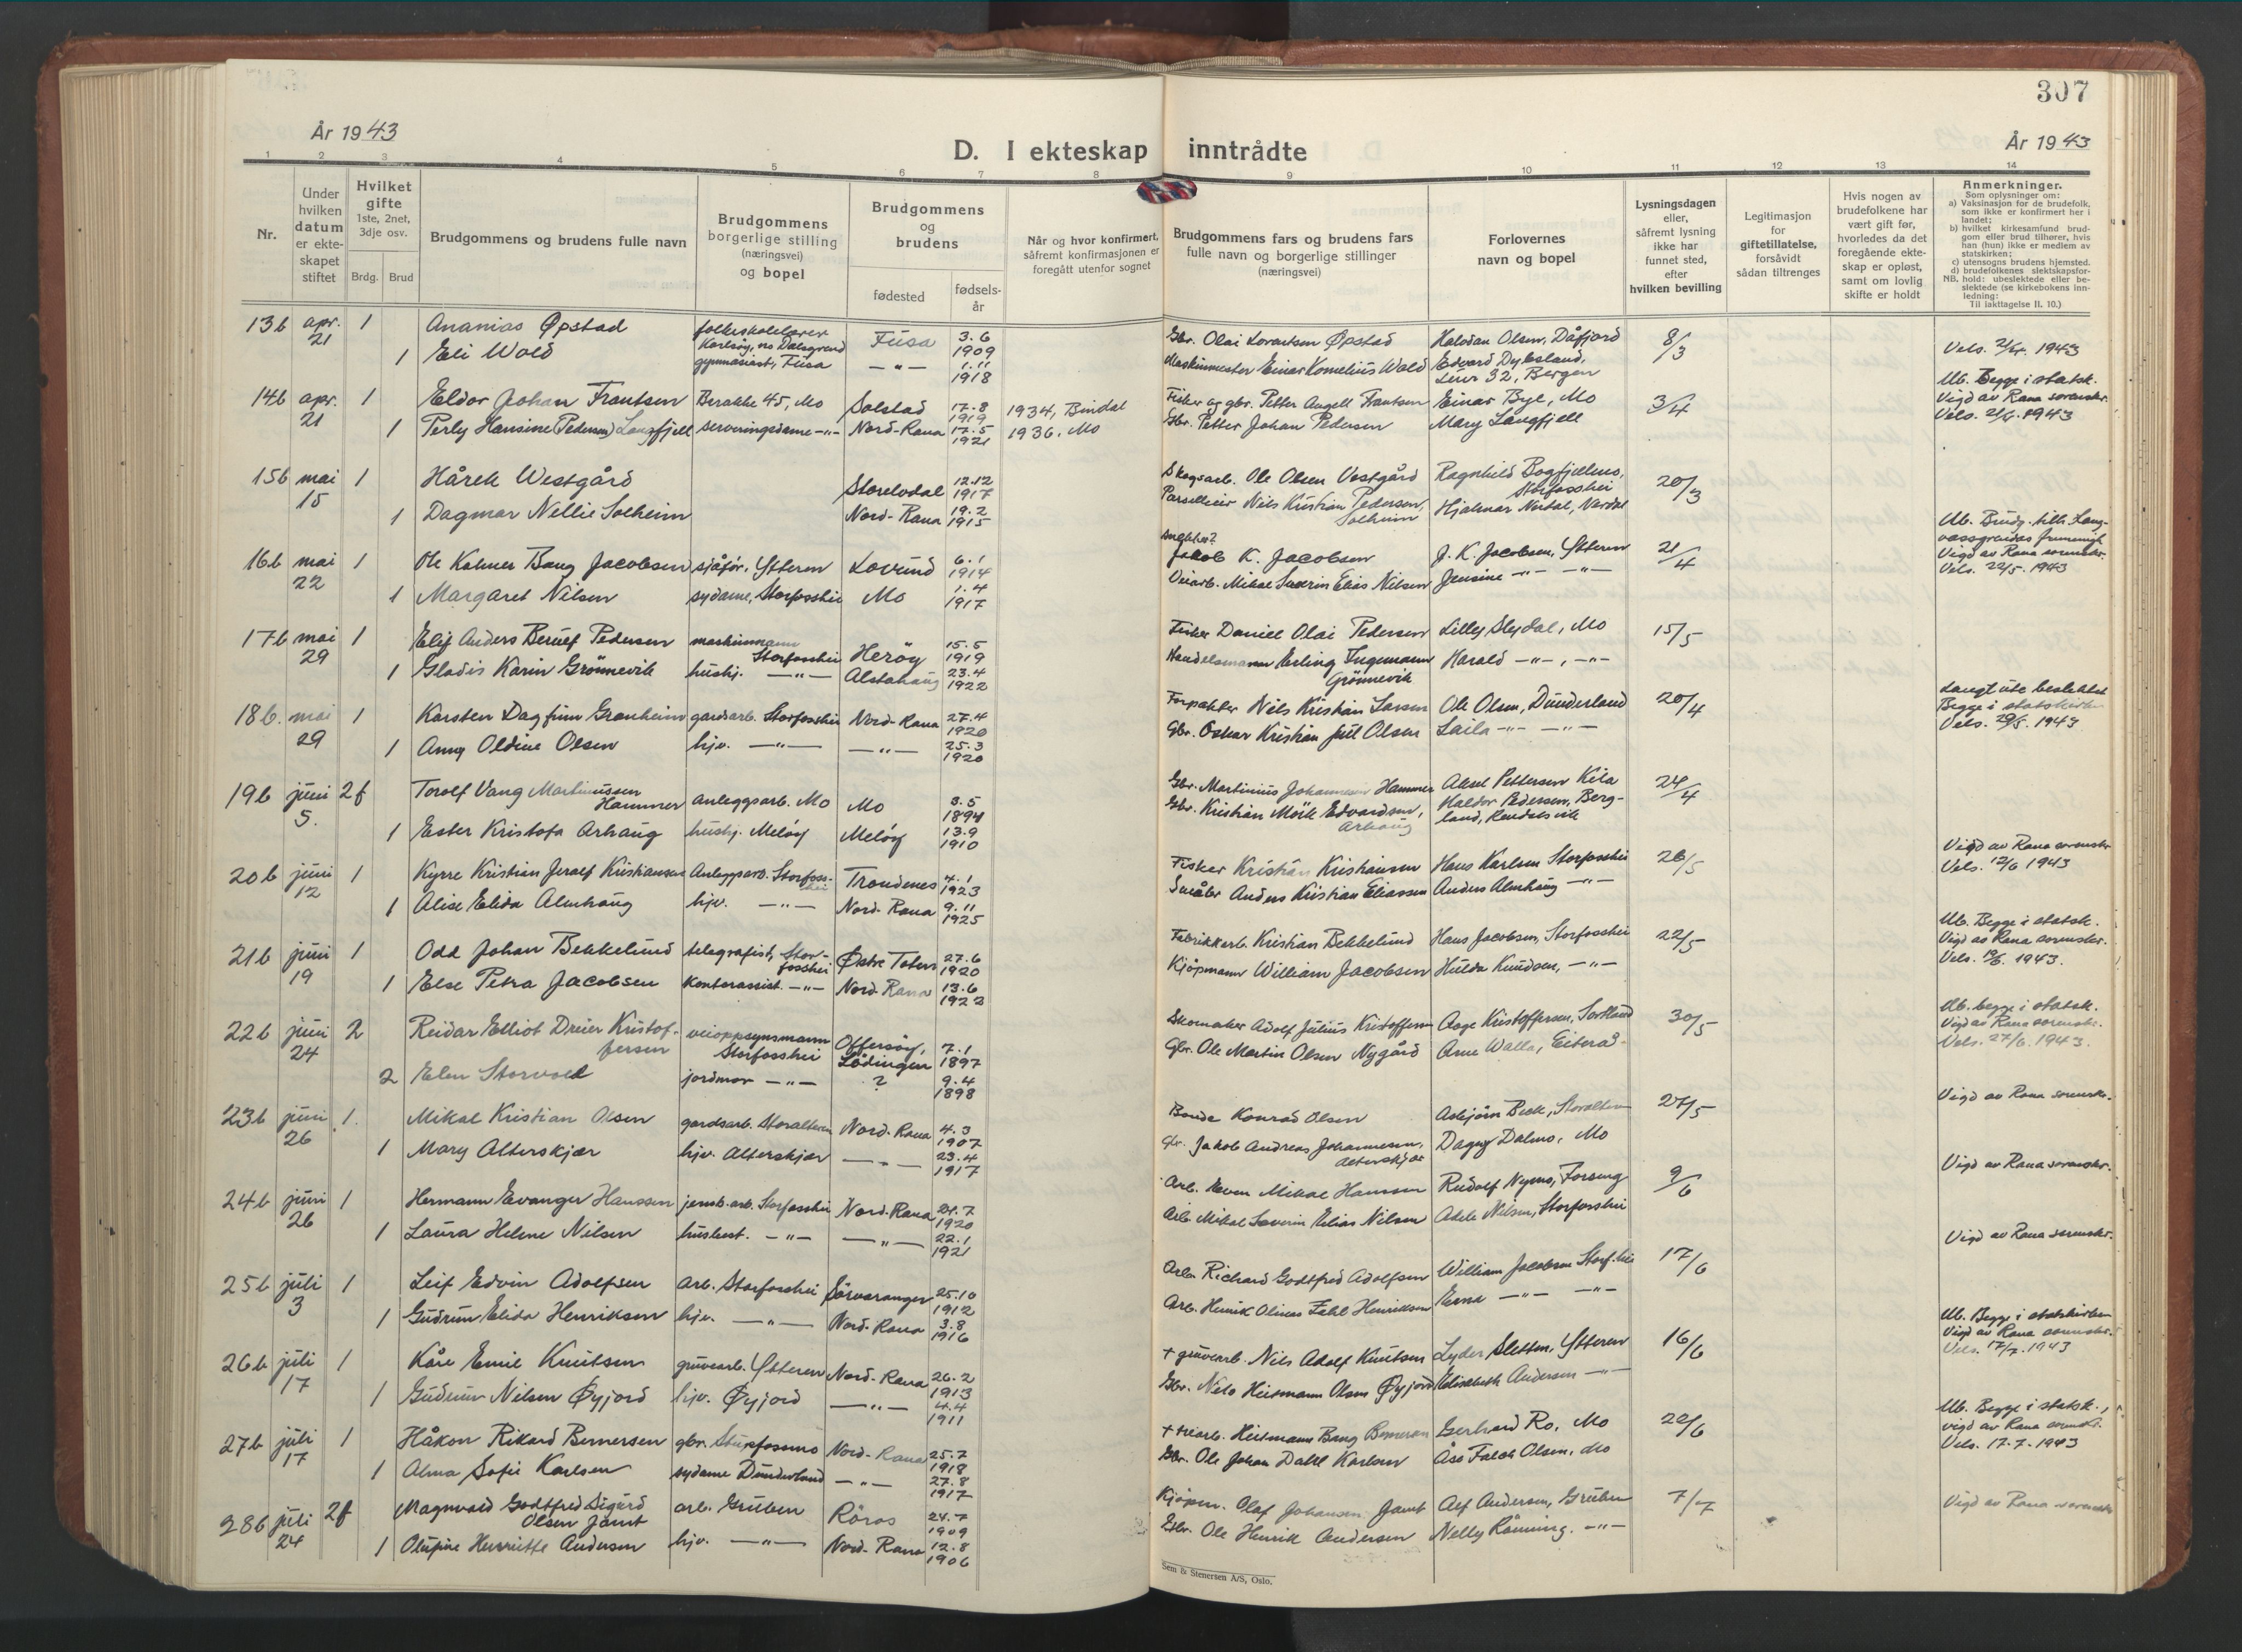 307
År 1943
D. I ekteskap inntrådte
År 1943
1 2 3 4 5 6 7 8 9 10 11 12 13 14
Nr.
Under hvilken datum er ekteskapet stiftet
Hvilket gifte 1ste, 2net, 3dje osv.
Brdg. Brud
Brudgommens og brudens fulle navn
Brudgommens borgerlige stilling (næringsvei) og bopel
Brudgommens og brudens
fødested
fødsels-år
Når og hvor konfirmert, såfremt konfirmasjonen er foregått utenfor sognet
Brudgommens fars og brudens fars fulle navn og borgerlige stillinger (næringsvei)
Forlovernes navn og bopel
Lysningsdagen eller, såfremt lysning ikke har funnet sted, efter hvilken bevilling
Legitimasjon for giftetillatelse, forsåvidt sådan tiltrenges
Hvis nogen av brudefolkene har vært gift før, hvorledes da det foregående ekteskap er opløst, samt om lovlig skifte er holdt
Anmerkninger.
Som oplysninger om:
a) Vaksinasjon for de brudefolk, som ikke er konfirmert her i landet;
b) hvilket kirkesamfund brudgom eller brud tilhører, hvis han (hun) ikke er medlem av statskirken;
c) utensogns brudens hjemsted.
d) brudefolkenes slektskapsforhold: ubeslektede eller beslektede (se kirkebokens innledning:
NB. Til iakttagelse II. 10.)
13b apr. 21 1 Ananias Øpstad folkeskolelærer Karlsøy, Fusa 3.6 1909 Gbr. Olai Lorentsen Øpstad Halvdan Olsen, Dåfjord 8/3
1 Eli Wold gymnasiast, Fusa — " — 1.11 1918 Maskinmester Einar Kornelius Wold Edvard Dyksland, 32, Bergen Vels. 21/4. 1943
14b apr. 21 1 Eldor Johan Frantsen Berakke 45, Mo Solstad 17.8 1919 1934, Bindal Fisker og gbr. Petter Angell Frantsen Einar Bye, Mo 3/4 Ub. Begge i statsk. Vigd av Rana sorenskr.
1 Perly Hansine (Pedersen) Langfjell serveringsdame —"— Nord-Rana 17.5 1921 1936, Mo Gbr. Petter Johan Pedersen Mary Langfjell Vels. 21/4. 1943
15b mai 15 1 Hårek Westgård Storelvdal 12.12 1917 Skogsarb. Ole Olsen Vestgård Ragnhild Bogfjellmo, Storfosshei 20/3
1 Dagmar Nellie Solheim Nord-Rana 19.2 1915 Parselleier Nils Kristian Pedersen, Solheim Hjalmar Nertal,
16b mai 22 1 Ole Kolmer Bang Jacobsen sjåfør, Ytteren Lovund 6.1 1914 Jakob K. Jacobsen J. K. Jacobsen, Ytteren 21/4 Ub. Brudg. tilh. Langvassgrendas frimenigh. Vigd av Rana sorenskr.
1 Margaret Nilsen sydame, Storfosshei Mo 1.4 1917 Veiarb. Mikal Severin Elias Nilsen Jensine —"— —"— Vels. 22/5. 1943
17b mai 29 1 Elif Anders Berulf Pedersen maskinmann Storfosshei Herøy 15.5 1919 Fisker Daniel Olai Pedersen Lilly Slydal, Mo 15/5
1 Gladis Karin Grønnevik hushj. —"— Alstahaug 23.4 1922 Handelsmann Erling Ingemann Grønnevik Harald —"—, —"—
18b. mai 29 1 Karsten Dagfinn Granheim gardsarb. Storfosshei Nord-Rana 27.4 1920 Forpakter Nils Kristian Larsen Ole Olsen, Dunderland 20/4 Langt ute beslektet Begge i statskirken
1 Anny Oldine Olsen hjv. —"— —"— 25.3 1920 Gbr. Oskar Kristian Juil Olsen Laila —"— —"— Vels. 29/5. 1943
19b juni 5. 2f Torolf Vang Martinussen Hammer anleggsarb. Mo Mo 3.5 1894 Gbr. Martinius Johannesen Hammer Aksel Pettersen Kila 24/4
1 Ester Kristofa Arhaug hushj. Meløy Meløy 13.9 1910 Gbr. Kristian Mørk Edvardsen, Arhaug Haldor Pedersen, Bergland,
20b juni 12 1 Kyrre Kristian Jerolf Kristiansen Anleggsarb. Storfosshei Trondenes 4.1 1923 Fisker Kristian Kristiansen Hans Karlsen Storfosshei 26/5 Vigd av Rana sorenskr.
1 Alise Elida Almhaug hjv. —"— Nord-Rana 9.11 1925 Småbr Anders Kristian Eliassen Anders Almhaug —"— Vels. 12/6 1943
21b juni 19 1 Odd Johan Bekkelund telegrafist, Storfosshei Østre Toten 27.6 1920 Fabrikkarb. Kristian Bekkelund Hans Jacobsen, Storfosshei 22/5 Ub. Begge i statsk. Vigd av Rana sorenskr.
1 Else Petra Jacobsen kontorassist. —"— Nord-Rana 13.6 1922 Kjøpmann William Jacobsen Hulda Knudsen, —"— Vels. 19/6. 1943.
22b juni 24 2 Reidar Elliot Dreier Kristoffersen veioppsynsmann Storfosshei Offersøy, Lødingen 7.1 1897 Skomaker Adolf Julius Kristoffersen Aage Kristoffersen, Sortland 30/5 Ub. begge i statsk. Vigd av Rana sorenskr.
2 Elen Storvoll jordmor —"— ? 9.4 1898 Gbr. Ole Martin Olsen Nygård Arne Walla, Eiterå Vels. 27/6. 1943.
23b juni 26 1. Mikal Kristian Olsen gardsarb. Storalteren Nord-Rana 4.3 1907 Bonde Konrad Olsen Asbjørn Bech, Storalteren 27/5 Vigd av Rana sorenskr.
1 Mary Alterskjær hjv. Alterskjær —"— 23.4 1917 Gbr. Jakob Andreas Johannesen, Alterskjær Dagny Dalmo, Mo
24b juni 26 1 Hermann Evanger Hanssen jernb.arb. Storfosshei Nord-Rana 24.7 1920 Arb. Even Mikal Hanssen Rudolf Nymo, Forseng 9/6 Vigd av Rana sorenskr.
1 Laura Helene Nilsen husbest. —"— —"— 22.1 1921 Arb. Mikal Severin Elias Nilsen Adele Nilsen, Storfosshei
25b juli 3 1 Leif Edvin Adolfsen arb. Storfosshei Sørvaranger 25.10 1912 Arb. Richard Godtfred Adolfsen William Jacobsen Storf.hei 17/6 Vigd av Rana sorenskr.
1 Gudrun Elida Henriksen hjv. —"— Nord-Rana 3.8 1916 Arb. Henrik Olinus Henriksen Erna —"— —"—
26b juli 17 1 Kåre Emil Knutsen gruvearb. Ytteren Nord-Rana 26.2 1913 + gruvearb. Nils Adolf Knutsen Lyder Sletten, Ytteren 16/6 Ub. Begge i statskirken Vigd av Rana sorenskr.
1 Gudrun Nilsen Øyjord hjv. Øyjord —"— 4.4 1911 Gbr. Nils Heitmann Olsen Øyjord Elisabeth Andersen —"— Vels. 17/7. 1943
27b juli 17 1 Håkon Rikard Bernersen gbr. Stupfossmo Nord-Rana 25.7 1918 + Heitmann Bang Bernersen Gerhard Ro, Mo 22/6 Ub. Begge i statsk., vigd av Rana sorenskr.
1 Alma Sofie Karlsen sydame Dunderland —"— 27.8 1917 Gbr. Ole Johan Dahl Karlsen Åse Falch Olsen, Mo Vels. 17-7-1943
28b juli 24 2f Magnvald Godtfred Sigurd Olsen Jamt arb. Gruben Røros 24.7 1909 Kjøpm. Olaf Johansen Jamt Alf Andersen, Gruben 7/7 Vigd av Rana sorenskr
1 Olufine Henriette Andersen hjv. —"— Nord-Rana 12.8 1906 Gbr. Ole Henrik Andersen Nelly Rønning. —"—
Sem & Stenersen A/S, Oslo.